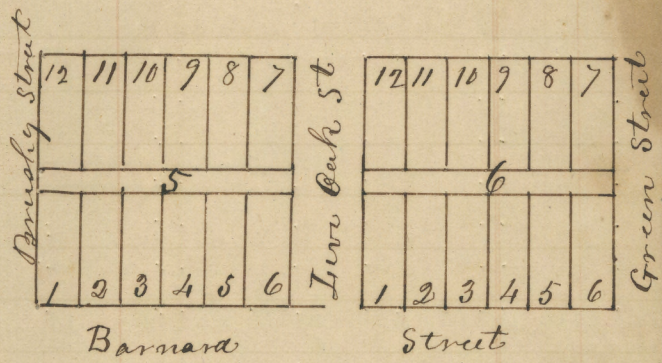 Brushy Street
12 11 10 9 8 7
5
1 2 3 4 5 6
Live Oak St
12 11 10 9 8 7
6
1 2 3 4 5 6
Green Street
Barnard Street